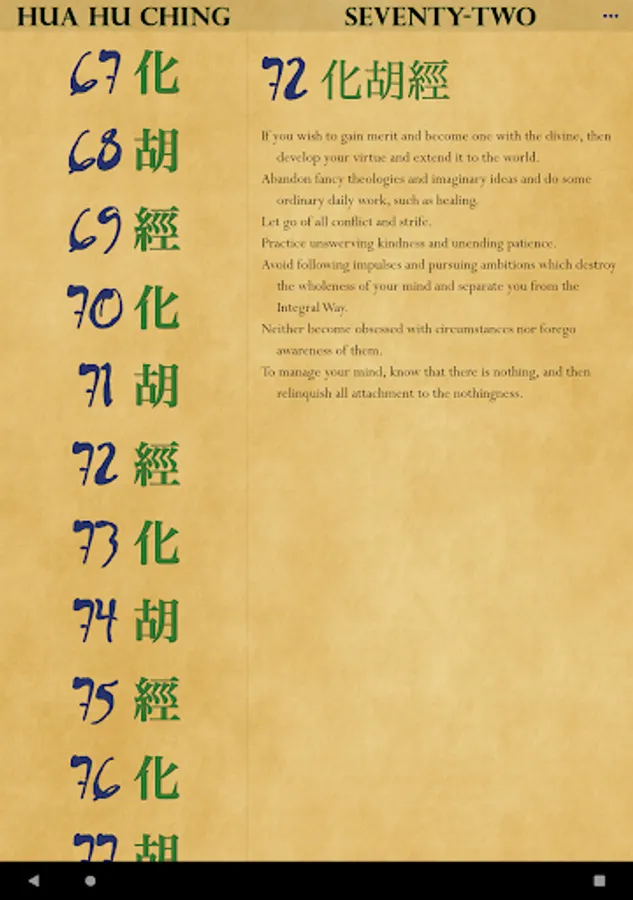 HUA HU CHING
SEVENTY-TWO
67 化
68 胡
69 經
70 化
71 胡
72 經
73 化
74 胡
75 經
76 化
77 胡
72 化胡經
If you wish to gain merit and become one with the divine, then
develop your virtue and extend it to the world.
Abandon fancy theologies and imaginary ideas and do some
ordinary daily work, such as healing.
Let go of all conflict and strife.
Practice unswerving kindness and unending patience.
Avoid following impulses and pursuing ambitions which destroy
the wholeness of your mind and separate you from the
Integral Way.
Neither become obsessed with circumstances nor forego
awareness of them.
To manage your mind, know that there is nothing, and then
relinquish all attachment to the nothingness.